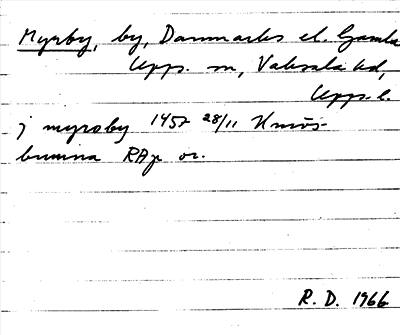 Myrby, by, Danmarks el. Gamla
Upps. sn, Vaksala hd,
Upps. l.
j myroby 1457 28/11 Knivs-
brunna RAp or.
R. D. 1966